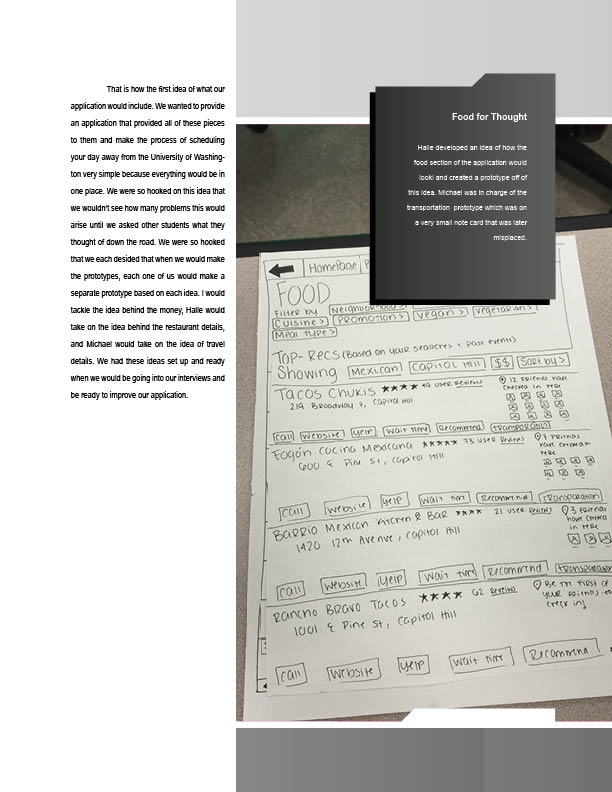 That is how the first idea of what our
application would include. We wanted to provide
an application that provided all of these pieces
to them and make the process of scheduling
your day away from the University of Washing-
ton very simple because everything would be in
one place. We were so hooked on this idea that
we wouldn't see how many problems this would
arise until we asked other students what they
thought of down the road. We were so hooked
that we each desided that when we would make
the prototypes, each one of us would make a
separate prototype based on each idea. I would
tackle the idea behind the money, Halle would
take on the idea behind the restaurant details,
and Michael would take on the idea of travel
details. We had these ideas set up and ready
when we would be going into our interviews and
be ready to improve our application.
Food for Thought
Halle developed an idea of how the
food section of the application would
looki and created a prototype off of
this idea. Michael was in charge of the
transportation prototype which was on
a very small note card that was later
misplaced.
HomePage
FOOD
Filter by Neighborhood >
Cuisine > Promotion > Vegan > Vegetarian >
Meal type >
Top-Recs (Based on your searches & past events)
Showing Mexican Capitol Hill $$ Sort by >
Tacos Chukis ★★★★ 49 user reviews
219 Broadway E, Capitol Hill
12 friends have
checked in here
Call Website Yelp Wait time Recommend Transportation
Fogón Cocina Mexicana ★★★★★ 73 user reviews
600 E Pine St, Capitol Hill
7 friends
have checked in
here
Call Website Yelp Wait time Recommend Transportation
Barrio Mexican Kitchen & Bar ★★★★ 21 user reviews
1420 12th Avenue, Capitol Hill
3 friends
have checked
in here
Call Website Yelp Wait time Recommend Transportation
Rancho Bravo Tacos ★★★★ 62 reviews
1001 E Pine St, Capitol Hill
Be the first of
your friends to
check in!
Call Website Yelp Wait time Recommend